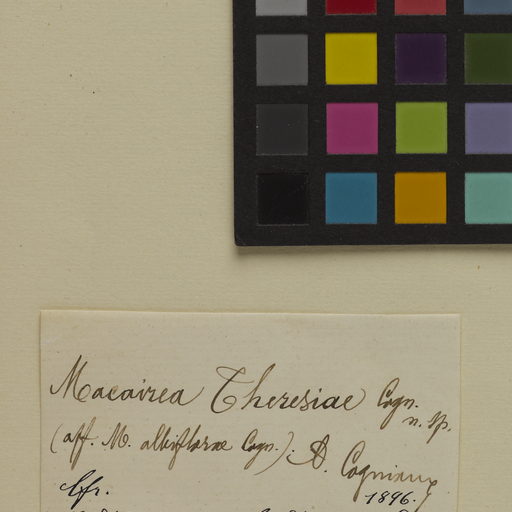 Macairea Theresiae Cogn.
n. sp.
(aff. M. albiflorae Cogn.). A. Cogniaux
1896.
Cfr.